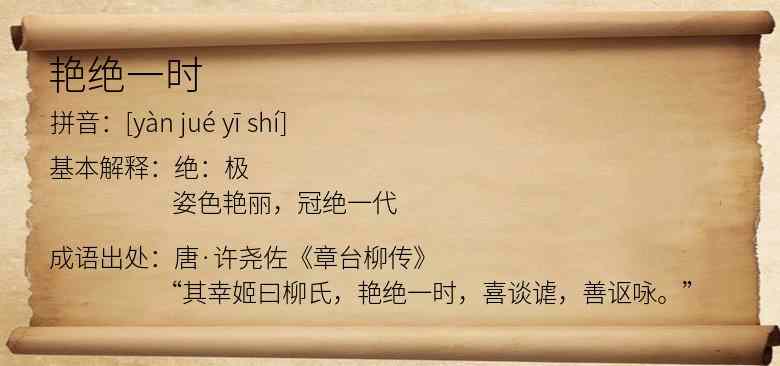 艳绝一时
拼音：[yàn jué yī shí]
基本解释：绝：极
姿色艳丽，冠绝一代
成语出处：唐·许尧佐《章台柳传》
“其幸姬曰柳氏，艳绝一时，喜谈谑，善讴咏。”